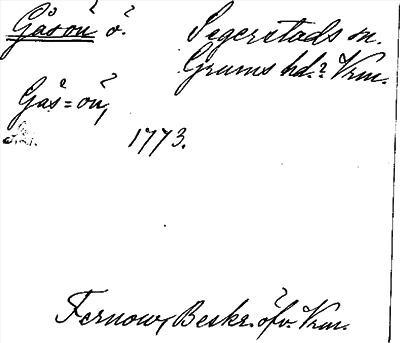 Gåsön ö. Segerstads sn.
Grums hd. Vrm.
Gås=ön,
1773.
Fernow, Beskr. öfv. Vrm.